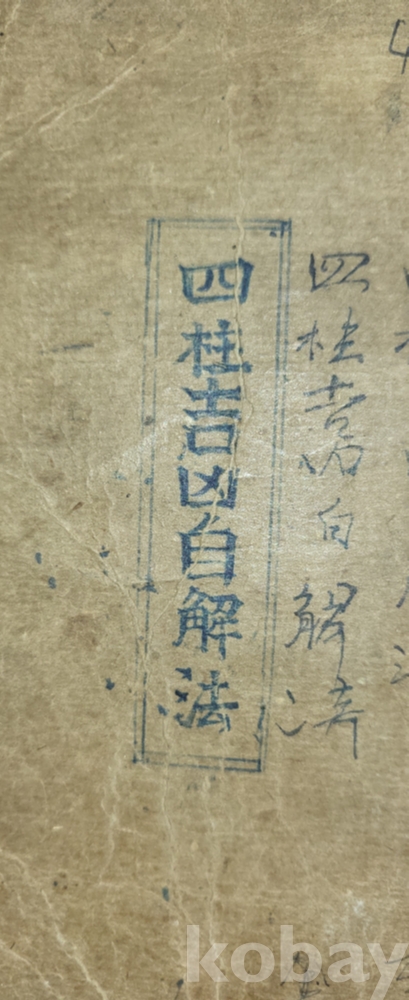 四柱吉凶自解法
四柱吉凶自解法
kobay